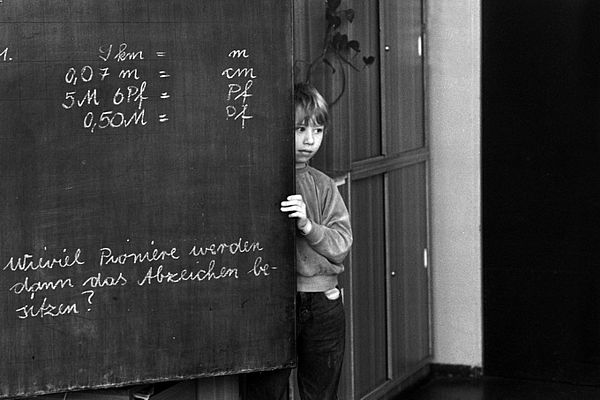 1. 9 km = m
0,07 m = cm
5M 6Pf = Pf
0,50M = Pf
Wieviel Pioniere werden
dann das Abzeichen be-
sitzen?